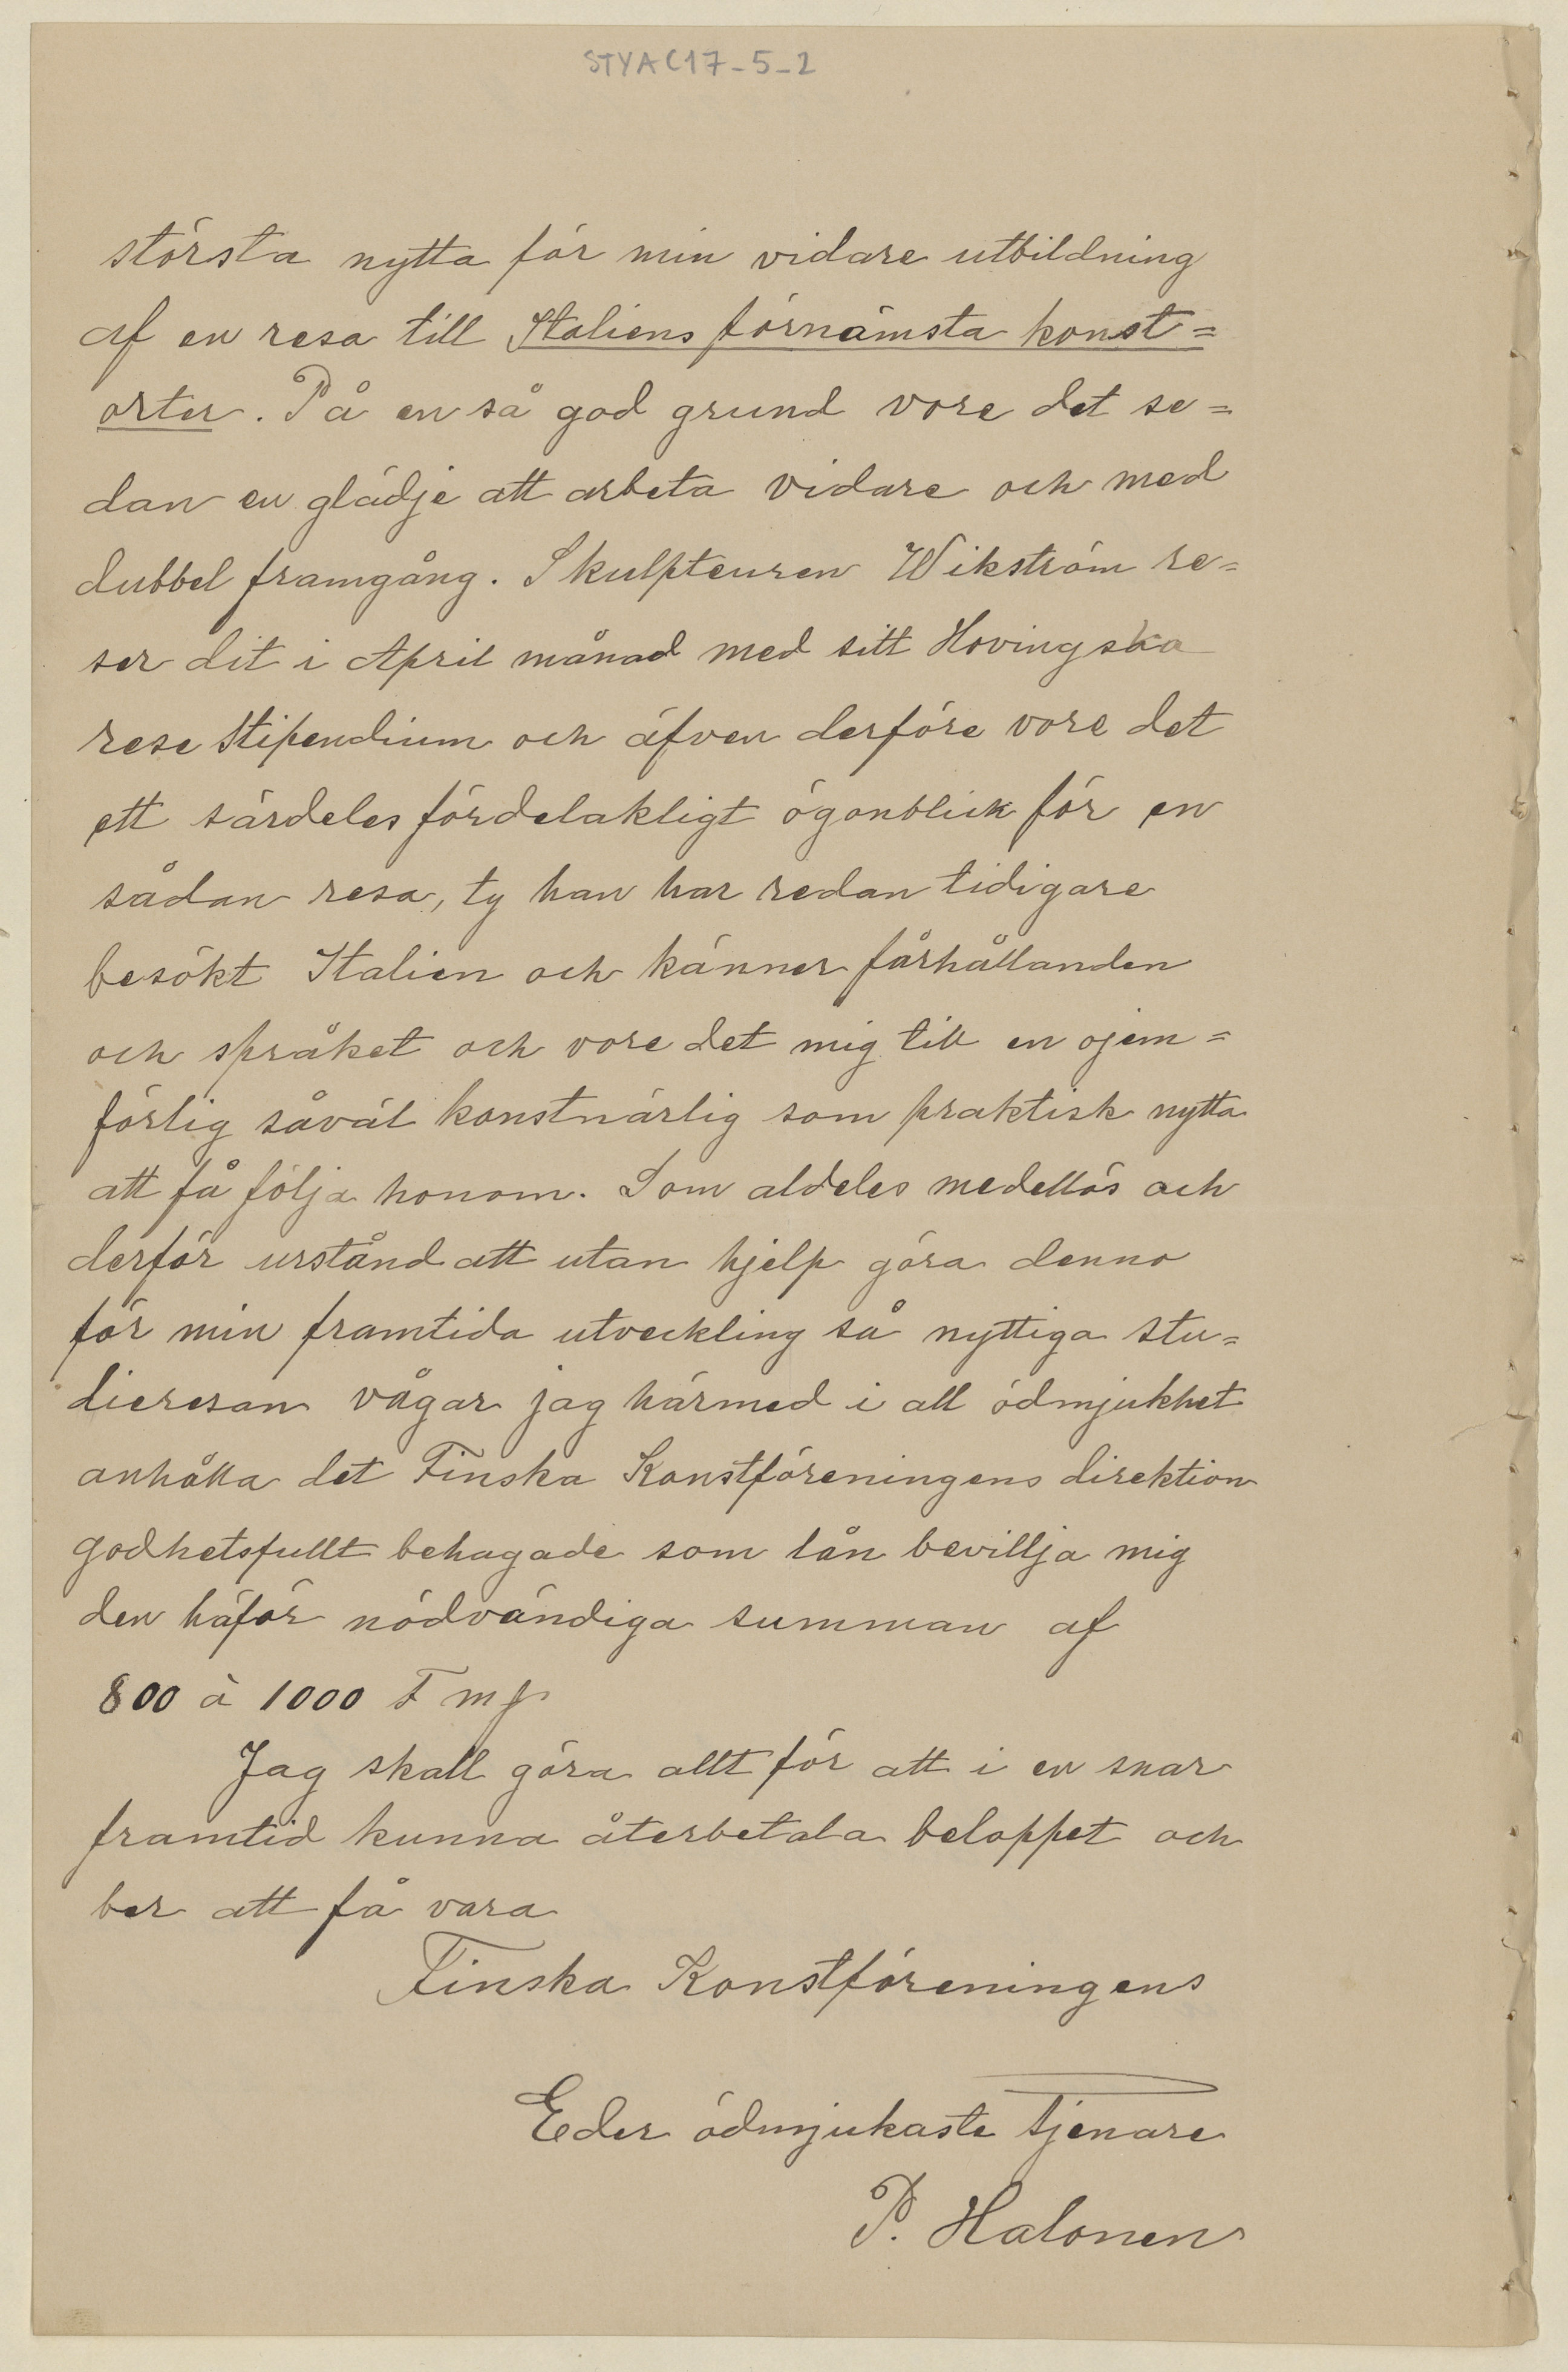 STYA C17-5-2
största nytta för min vidare utbildning
af en resa till Italiens förnämsta konst=
orter. På en så god grund vore det se=
dan en glädje att arbeta vidare och med
dubbel framgång. Skulpteuren Wikström re=
ser dit i April månad med sitt Hovingska
rese stipendium och äfven derföre vore det
ett särdeles fördelakligt ögonblick för en
sådan resa, ty han har redan tidigare
besökt Italien och känner förhållanden
och språket och vore det mig till en ojem=
förlig såväl konstnärlig som praktisk nytta
att få följa honom. Som aldeles medellös och
derför urstånd att utan hjelp göra denna
för min framtida utveckling så nyttiga stu=
dieresan vågar jag härmed i all ödmjukhet
anhålla det Finska Konstföreningens direktion
godhetsfullt behagade som lån bevillja mig
den häför nödvändiga summan af
800 à 1000 Fmp
Jag skall göra allt för att i en snar
framtid kunna återbetala beloppet och
ber att få vara
Finska Konstföreningens
Eder ödmjukaste tjenare
P. Halonen